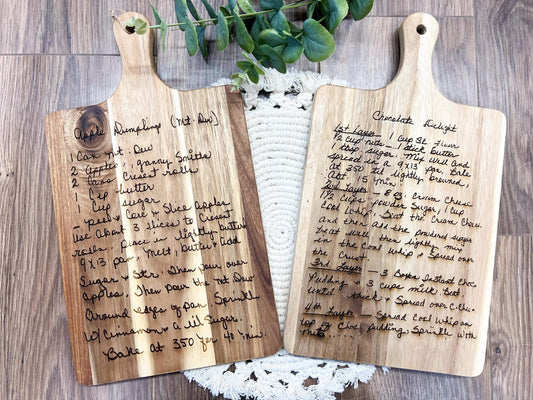 Apple Dumplings (Mt. Dew)
1 Can Mt. Dew
2 Apples, granny Smiths
2 Cans Cresent rolls
1 Cup butter
1 Cup sugar
- peel & Core & Slice Apples
Use About 3 slices to Cresent
rolls, place in lightly butter
9x13 pan. Melt, butter, Add
Sugar & Stir. Then pour over
Apples, Then pour the Mt. Dew
Around edges of pan. Sprinkle
W/ Cinnamon & a lil Sugar.
Bake At 350 for 40 min.
Chocolate Delight
1st Layer - 1 Cup SR Flour
1/2 cup nuts - 1 stick butter
1 tbsp sugar. Mix well and
spread in a 9x13 pan. Bake
at 350 til lightly browned,
Abt. 15 min.
2nd Layer - 8 oz. Cream Cheese
1 1/2 Cups powder Sugar, 1 cup
Cool Whip, Beat the Cream Cheese
and add the powdered sugar
beat well then lightly mix
in the Cool Whip & Spread over
the Crust.
3rd Layer - 3 Boxes Instant Choc
Pudding & 3 cups milk Beat
until thick & Spread over C.Che.
4th Layer - Spread Cool Whip on
top of Choc pudding Sprinkle with
Nuts